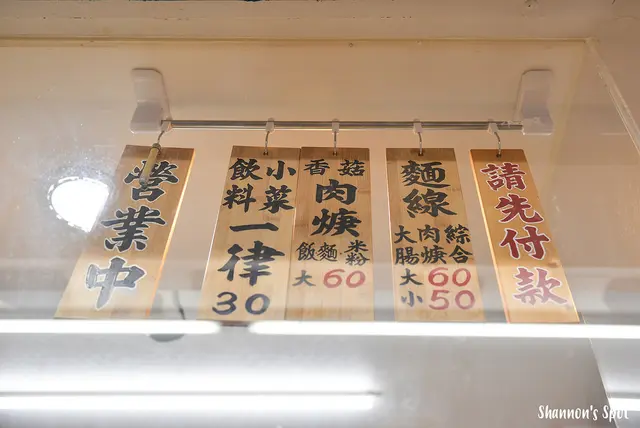 營業中
小菜
飲料
一律
30
香菇
肉焿
飯麵米粉
大60
麵線
大腸 肉焿 綜合
大60
小50
請先付款
Shannon's Spot